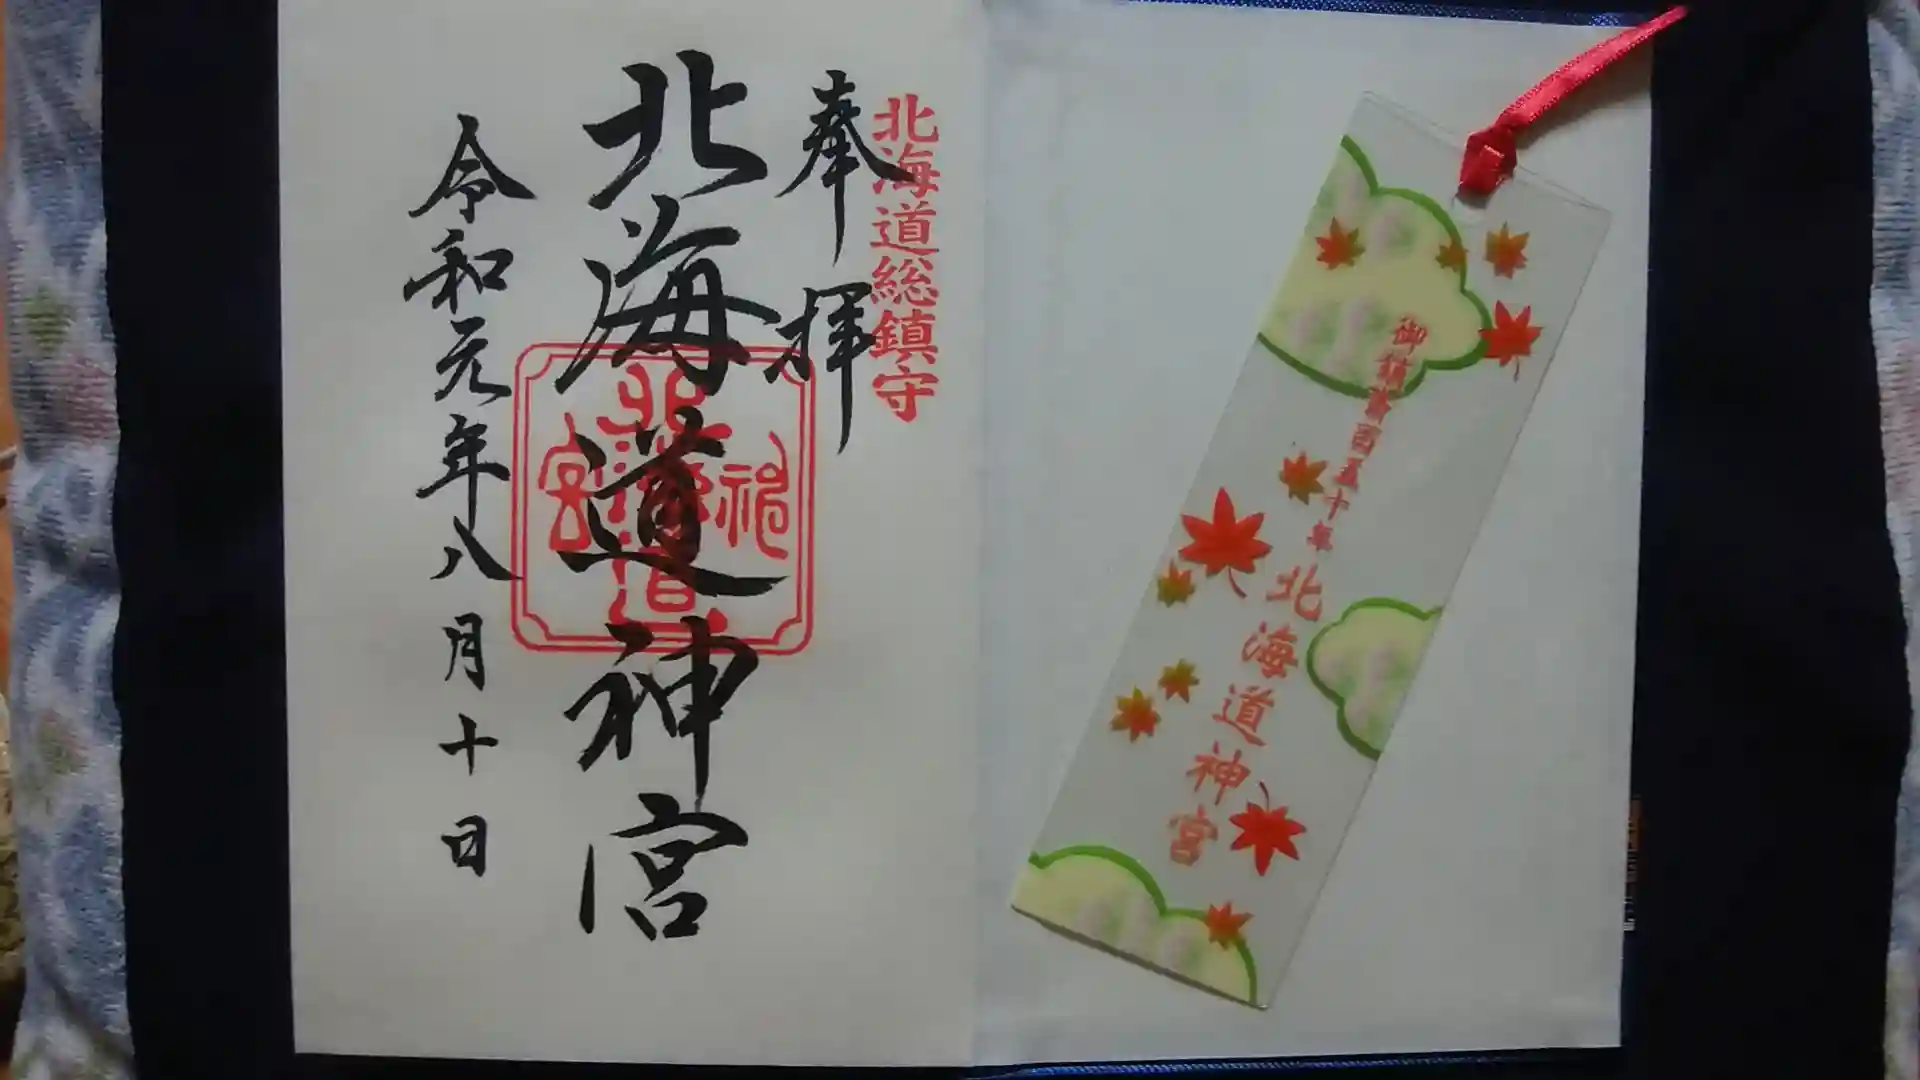 北海道総鎮守
奉拝
北海道神宮
令和元年八月十日
北海道神宮
御鎮斎百五十年
北海道神宮